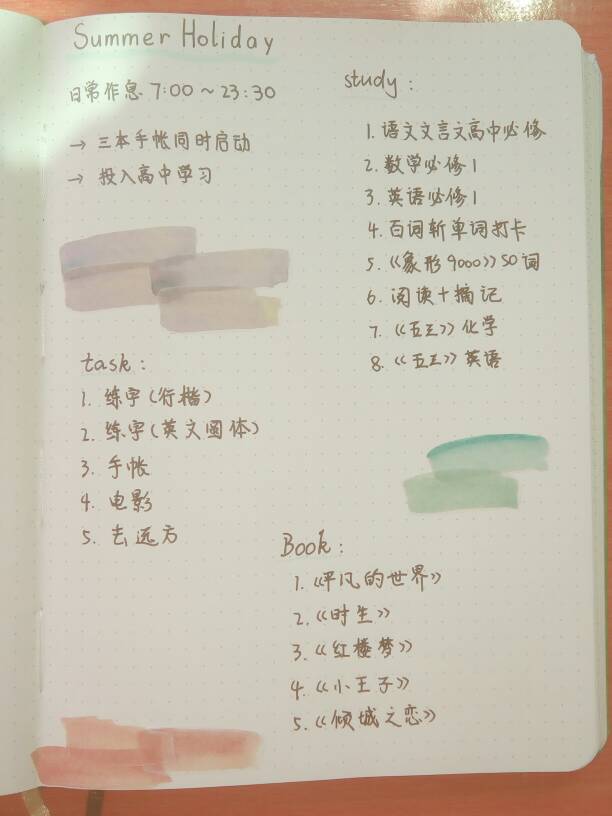 Summer Holiday
日常作息 7:00～23:30
→ 三本手帐同时启动
→ 投入高中学习
study:
1. 语文文言文高中必修
2. 数学必修1
3. 英语必修1
4. 百词斩单词打卡
5. 《象形9000》50词
6. 阅读+摘记
7. 《五三》化学
8. 《五三》英语
task:
1. 练字(行楷)
2. 练字(英文圆体)
3. 手帐
4. 电影
5. 去远方
Book:
1. 《平凡的世界》
2. 《时生》
3. 《红楼梦》
4. 《小王子》
5. 《倾城之恋》